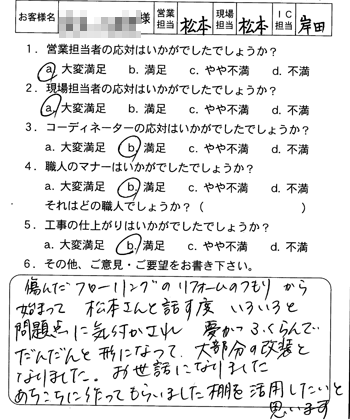 お客様名 様 営業担当 松本 現場担当 松本 IC担当 岸田
1．営業担当者の応対はいかがでしたでしょうか？
a. 大変満足 b. 満足 c. やや不満 d. 不満
2．現場担当者の応対はいかがでしたでしょうか？
a. 大変満足 b. 満足 c. やや不満 d. 不満
3．コーディネーターの応対はいかがでしたでしょうか？
a. 大変満足 b. 満足 c. やや不満 d. 不満
4．職人のマナーはいかがでしたでしょうか？
a. 大変満足 b. 満足 c. やや不満 d. 不満
それはどの職人でしょうか？（ ）
5．工事の仕上がりはいかがでしたでしょうか？
a. 大変満足 b. 満足 c. やや不満 d. 不満
6．その他、ご意見・ご要望をお書き下さい。
傷んだフローリングのリフォームのつもりから
始まって 松本さんと話す度 いろいろと
問題点に気付かされ 夢がふくらんで
だんだんと形になって、大部分の改装と
なりました。お世話になりました
あちこちに作ってもらいました棚を活用したいと
思います